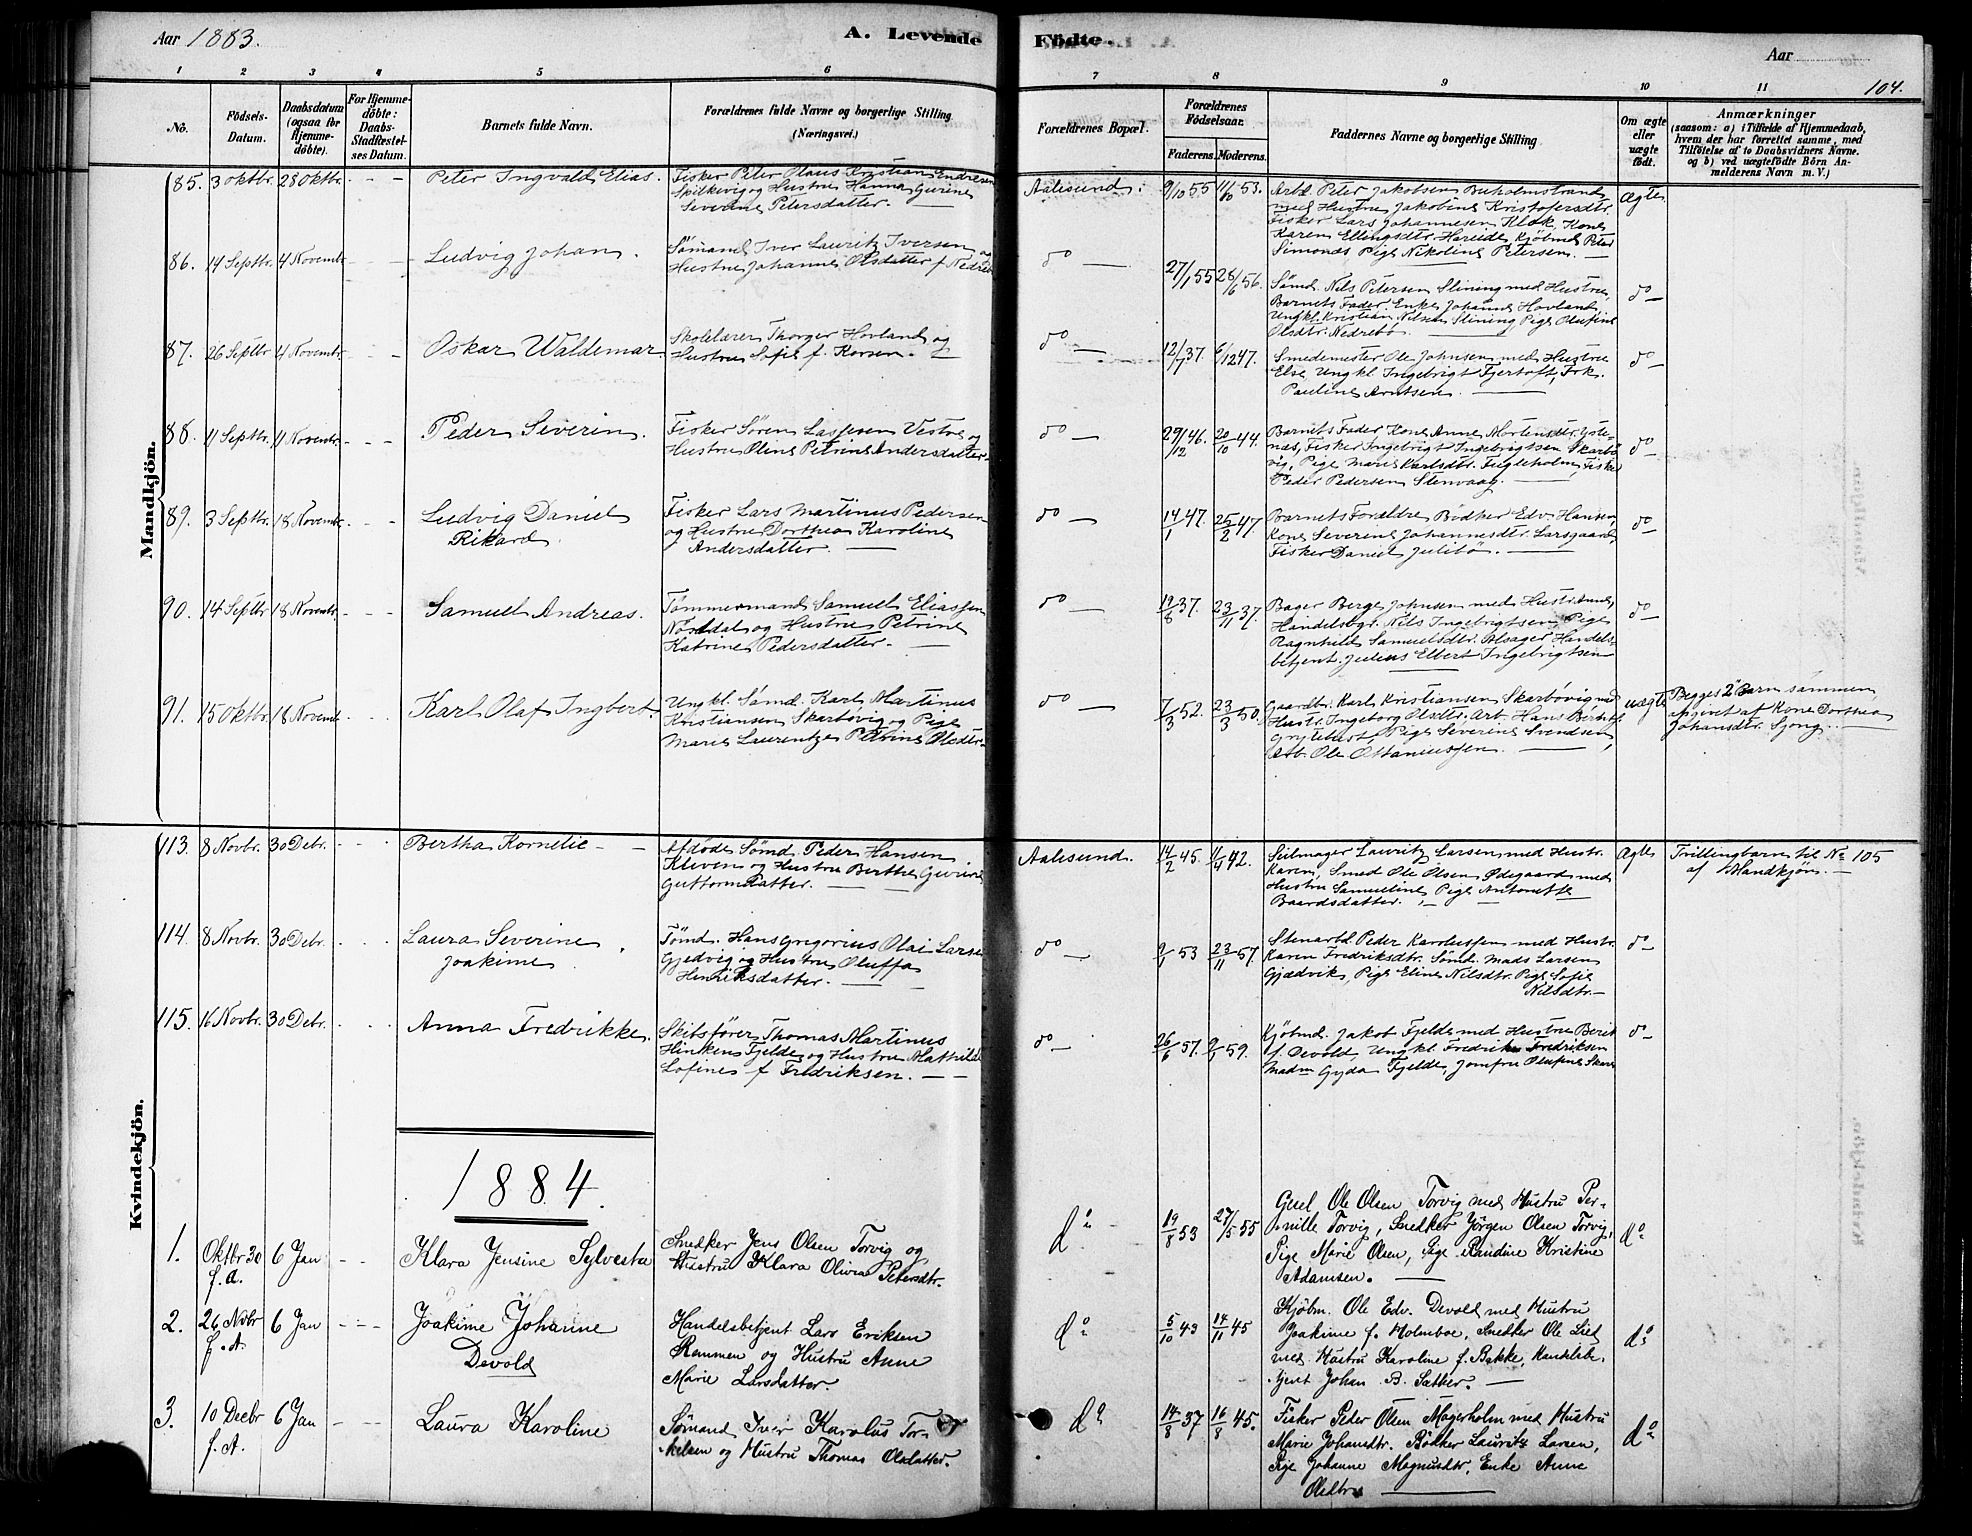 Aar 1883.
A. Levende
Födte.
Aar
104.
1 2 3 4 5 6 7 8 9 10 11
No.
Födsels-
Datum.
Daabsdatum
(ogsaa for
Hjemme-
döbte).
For Hjemme-
döbte:
Daabs-
Stadfæstel-
ses Datum.
Barnets fulde Navn.
Forældrenes fulde Navne og borgerlige Stilling
(Næringsvei.)
Forældrenes Bopæl.
Forældrenes
Födselsaar.
Faderens. Moderens.
Faddernes Navne og borgerlige Stilling
Om ægte
eller
uægte
födt.
Anmærkninger
(saasom: a) i Tilfælde af Hjemmedaab,
hvem der har forrettet samme, med
Tilföielse af to Daabsvidners Navne.
og b) ved uægtefödte Börn An-
melderens Navn m. V.)
Mandkjön.
85. 3 Oktbr. 28 Oktbr. - -
Peter Ingvald Elias.
Fisker Peter Olaus Kristian Endresen
Spilkevig og Hustru Hanna Gurine
Severine Petersdatter.
Aalesund:
9/10 55 11/10 53.
Arbd. Peter Jakobsen Buholmstrand
med Hustru Jakobine Kristofersdtr.
Fisker Lars Johannesen Klok, Kone
Karen Ellingsdtr. Hareide, Kjöbmd. Peter
Simonæs Pige Nikoline Petersen.
Ægte
86. 14 Septbr. 4 Novembr. - -
Ludvig Johan.
Sømand Iver Lauritz Iversen og
Hustru Johanne Olsdatter f. Nedrebö
do
27/1 55 26/6 56.
Sømd. Nils Petersen Slining med Hustru,
Barnets Fader, Enke Johanne Hovland,
Ungkl. Kristian Nilsen Slining Pige Olufine
Olsdtr. Nedrebö.
do
87. 26 Septbr 4 Novembr. - -
Oskar Waldemar
Skolelærer Thorger Hovland og
Hustru Sofie f. Korsen.
do
12/7 37. 6/12 47.
Smedemester Ole Johnsen med Hustru
Else, Ungkl. Ingebrigt Fjertoft, Frk.
Pauline Arntsen.
do
88. 11 Septbr. 11 Novembr. - -
Peder Severin.
Fisker Søren Lassesen Vestre og
Hustru Oline Petrine Andersdatter
do
29/12 46. 20/10 44.
Barnets Fader Kone Anne Mortensdtr. Yste-
næs, Fisker Ingebrigt Ingebrigtsen Skarbö-
vig, Pige Marie Karlsdtr. Fugleholm, Fisker
Peder Pedersen Stenvaag.
do
89. 3 Septbr. 18 Novembr. - -
Ludvig Daniel
Rikard.
Fisker Lars Martinus Pedersen
og Hustru Dorthea Karoline
Andersdatter.
do
14/1 47. 25/2 47.
Barnets Forældre Bødker Edv. Hansen,
Kone Severine Johannesdtr. Larsgaard,
Fisker Daniel Julibö.
do
90. 14 Septbr 18 Novembr. - -
Samuel Andreas.
Tömmermand Samuel Eliassen
Norddal og Hustru Petrine
Katrine Pedersdatter.
do
19/8 37. 23/11 37.
Bager Berge Johnsen med Hustr. Anne,
Handelsbgr. Nils Ingebrigtsen, Pige
Ragnhild Samuelsdtr. Alsager, Handels-
betjent. Julius Elbert Ingebrigtsen
do
91. 15 Oktbr. 18 Novembr. - -
Karl Olaf Ingbert.
Ungkl. Sømd. Karl Martinus
Kristiansen Skarbövig og Pige
Marie Laurentze Petrine Olsdtr.
do
7/3 52. 23/3 50.
Gaardbr. Karl Kristiansen Skarbövig med
Hustr. Ingeborg Olsdtr. Arb. Hans
Severine Svendsen,
Arb. Ole Ottaniussen.
uægte
Begges 2det Barn sammen
opgivet af Kone Dorthea
Johansdtr. Sjong.
Kvindekjön.
113. 8 Novbr. 30 Debr. - -
Bertha Kornelie
Afdöde Sømd. Peder Hansen
Kleven og Hustru Berthe Gurine
Guttormsdatter.
Aalesund.
14/2 45. 11/4 42.
Seilmager Lauritz Larsen med Hustr.
Karen, Smed Ole Olsen Ødegaard med
Hustru Samueline, Pige Antonette
Baardsdatter.
Ægte
Tvillingbarn til No 105
af Mandkjön.
114. 8 Novbr. 30 Debr. - -
Laura Severine
Joakime
Tömd. Hans Gregorius Olai Larsen
Gjedvig og Hustru Oluffa
Henriksdatter.
do
9/1 53 23/11 57.
Stenarbd. Peder Karolussen med Hustr.
Karen Fredriksdtr. Sømd. Mads Larsen
Gjædvik, Pige Eline Nilsdtr. Pige Sofie
Nilsdtr.
do
115. 16 Novbr. 30 Debr. - -
Anna Fredrikke.
Skibsfører Thomas Martinus
Hinken Fjelde og Hustru Mathilde
Sofine f. Fredriksen.
do
26/6 57. 9/1 59.
Kjöbmd. Jakob Fjelde med Hustru Berit
f. Devold, Ungkl. Fredrik Fredriksen
Madm Gyda Fjelde, Jomfru Olufine Skare
do
1884.
1. Oktbr 30 f. A. 6 Jan - -
Klara Jensine Sylvesta
Snedker Jens Olsen Torvig og
Hustru Klara Olivia Petersdtr.
do
19/8 53 27/5 55
Gsel Ole Olsen Torvig med Hustru Per-
nille Torvig, Snedker Jörgen Olsen Torvig,
Pige Marie Olsen, Pige Randine Kristine
Adamsen.
do
2. 26 Novbr f. A. 6 Jan - -
Joakime Johanne
Devold
Handelsbetjent Lars Eriksen
Remmen og Hustru Anne
Marie Larsdatter.
do
5/10 43 14/11 45
Kjöbm. Ole Edv. Devold med Hustru
Joakime f. Holmboe, Snedker Ole Lied
med Hustru Karoline f. Bakke, Handelsbe-
tjent Johan B. Sæther.
do
3. 10 Decbr f. A. 6 Jan - -
Laura Karoline
Sømand Iver Karolus Tor-
kelsen og Hustru Thomas Olsdatter.
do
14/8 37 16/8 45.
Fisker Peder Olsen Magerholm med Hustru
Marie Johansdtr. Bødker Lauritz Larsen,
Pige Johanne Magnusdtr, Enke Anne
Olsdtr.
do